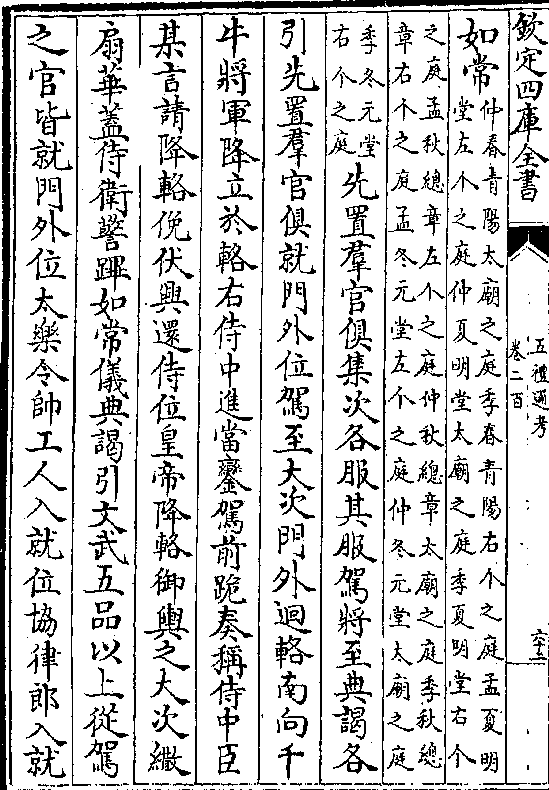 欽定四庫全書
五禮通考
卷二百
如常
仲春青陽太廟之庭季春青陽右个之庭孟夏明
堂左个之庭仲夏明堂太廟之庭季夏明堂右个
之庭孟秋總章左个之庭仲秋總章太廟之庭季秋總
章右个之庭孟冬元堂左个之庭仲冬元堂太廟之庭
季冬元堂
右个之庭
先置羣官俱集次各服其服駕將至典謁各
引先置羣官俱就門外位駕至大次門外迴輅南向千
牛將軍降立於輅右侍中進當鑾駕前跪奏稱侍中臣
某言請降輅俛伏興還侍位皇帝降輅御輿之大次繖
扇華蓋侍衛警蹕如常儀典謁引文武五品以上從駕
之官皆就門外位太樂令帥工人入就位協律郎入就